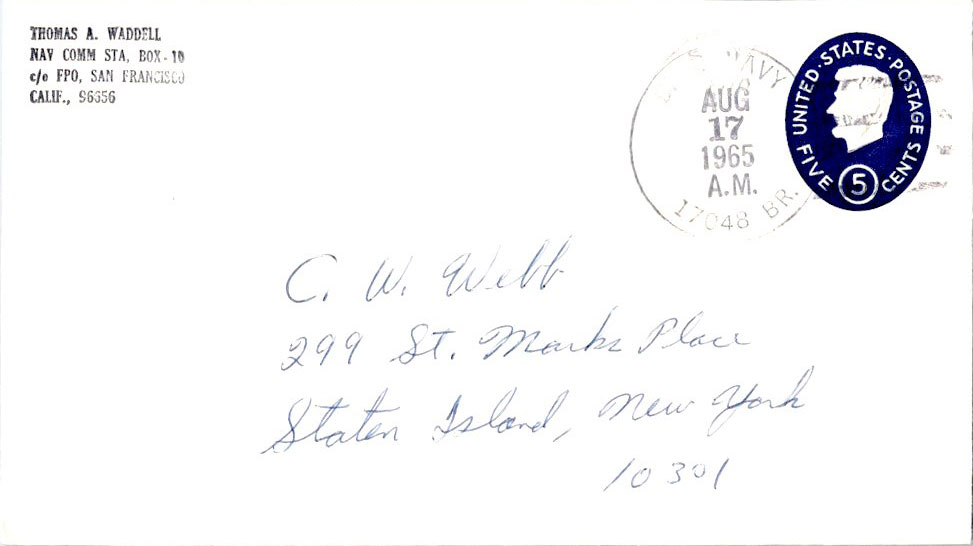 THOMAS A. WADDELL
NAV COMM STA, BOX-10
c/o FPO, SAN FRANCISCO
CALIF., 96656
U.S. NAVY
AUG
17
1965
A.M.
17048 BR.
UNITED·STATES·POSTAGE
FIVE 5 CENTS
C. W. Webb
299 St. Marks Place
Staten Island, New York
10301